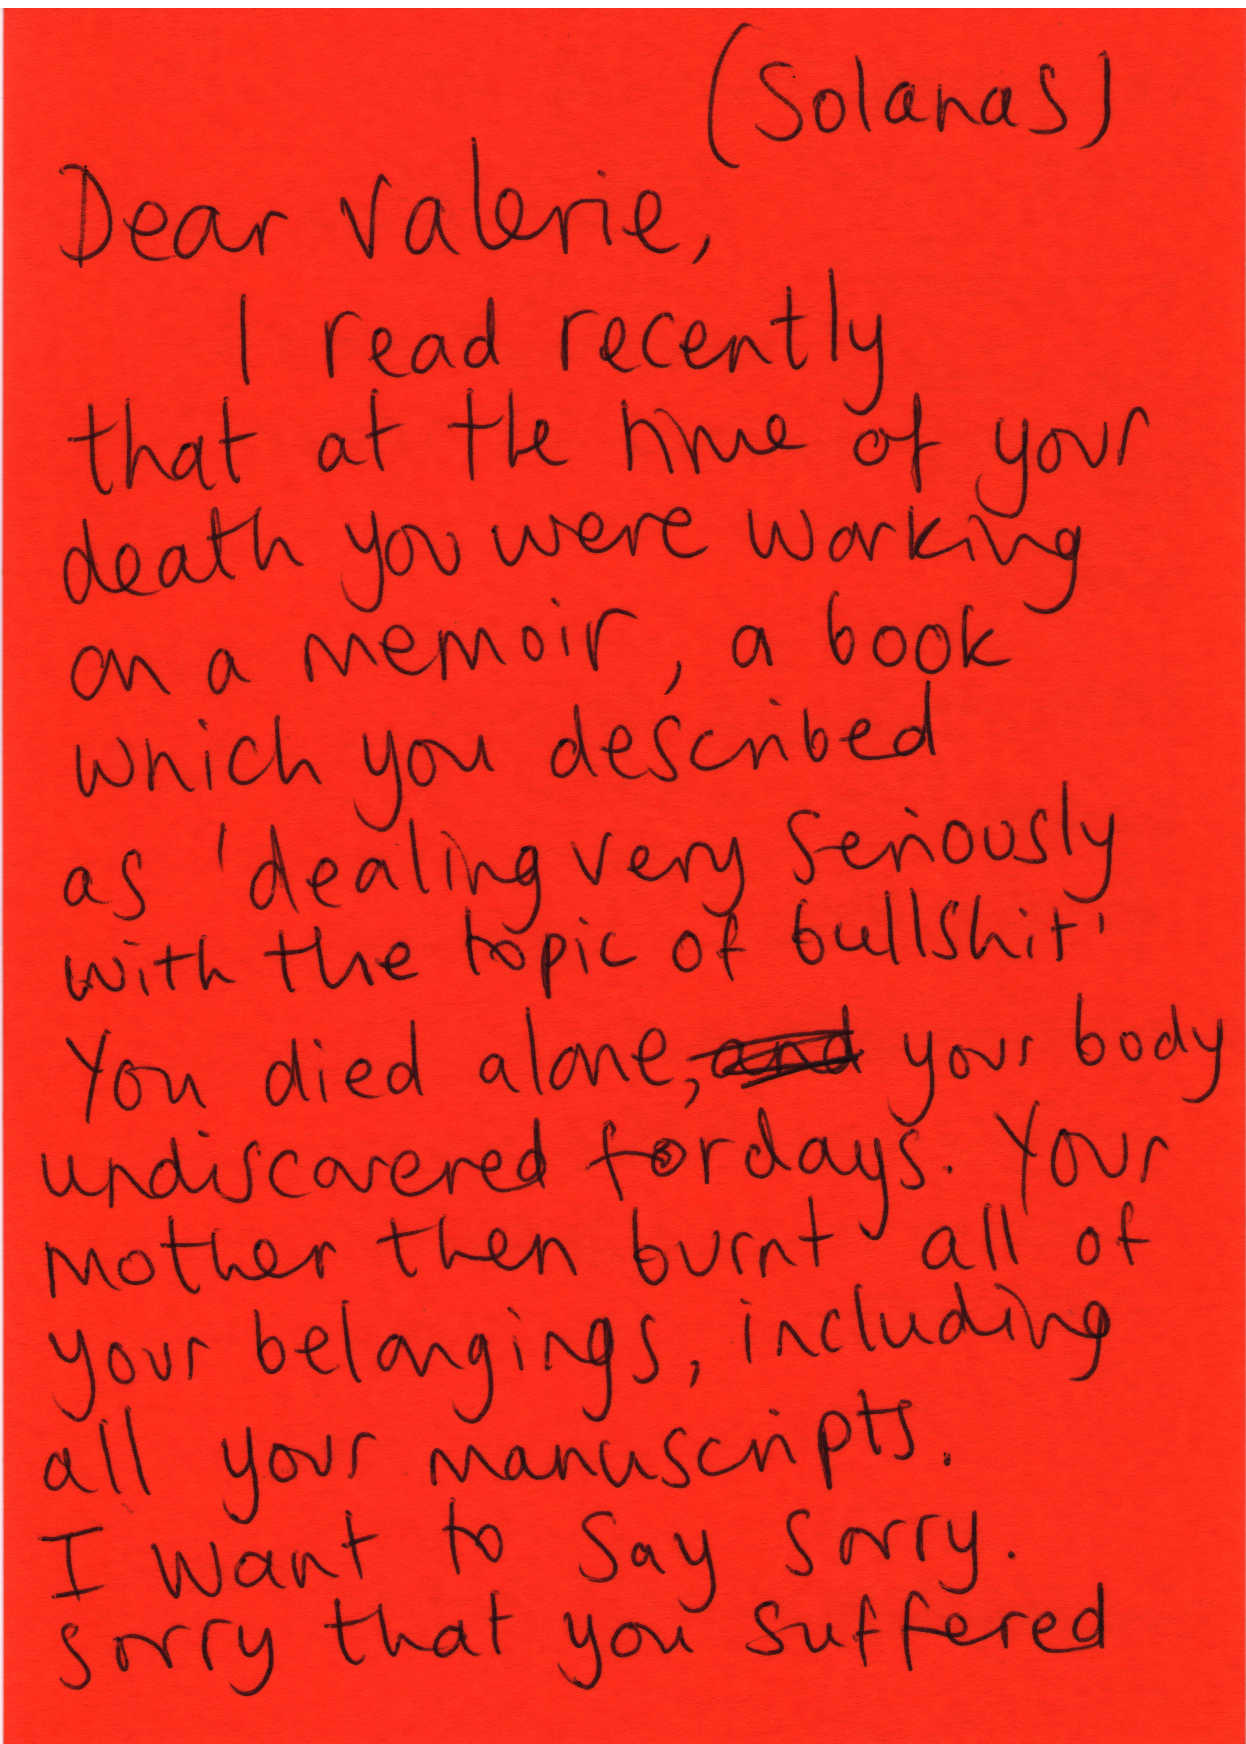 (Solanas)
Dear Valerie,
I read recently
that at the time of your
death you were working
on a memoir, a book
which you described
as 'dealing very seriously
with the topic of bullshit'
You died alone, and your body
undiscovered for days. Your
mother then burnt all of
your belongings, including
all your manuscripts.
I want to say sorry.
sorry that you suffered